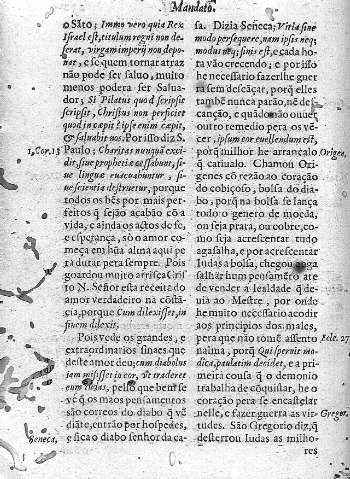 Mandato.
o Sãto; Immo vero quia Rex
Israel est, titulum regni non de
serat, virgam imperij non depo
nat, e se quem tornar atraz
não pode ser saluo, muito
menos podera ser Saluador; Si Pilatus quod scripsit
scripsit, Christus non perficiet
quod in cœpit? ipse enim cœpit,
& saluabit nos. Por isso diz S.
1. Cor. 13 Paulo; Charitas nunquã exci
dit, siue prophetiæ cessabunt, si
ue linguæ euacuabuntur, si
ue scientia destruetur, porque
todos os bẽs por mais per-
feitos q̃ sejão acabão cõ a
vida, e ainda os actos de fe,
e esperança, só o amor co
meça em hũa alma aqui pe
ra durar pera sempre. Pois
goardou muito a risca Cris
to N. Señor esta receita do
amor verdadeiro na cõstã
cia, porque Cum dilexisset, in
finem dilexit.
Pois vede os grandes, e
extraordinarios sinaes que
deste amor deu; cum diabolus
iam misisset in cor, vt traderet
eum Iudas, pello que bem se
vé q̃ os maos pensamentos
são correos do diabo q̃ vẽ
diãte, entrão por hospedes,
Seneca, e fica o diabo senhor da ca-
sa. Dizia Seneca; Vitia sine
modo persequere, nam ipsis neq;
modus neq; finis est, e cada ho
ra vão crecendo; e por isso
he necessario fazerlhe guer
ra sem descãçar, porq̃ elles
tambẽ nunca parão, nẽ des
canção, e quãdo não ouuer
outro remedio pera os vẽ
cer, ipsum cor euellendum est,
porq̃ milhor he arrancalo Origea.
q̃ catiualo. Chamou Ori
genes cõ rezão ao coração
do cobiçoso, bolsa do dia
bo, porq̃ na bolsa se lança
todo o genero de moeda,
ou seja prata, ou cobre, co
mo seja acrescentar tudo
agasalha, e por acrescentar
Iudas à bolsa, chegou a aga
salhar hum pensamẽto atre
de vender a lealdade q̃ de-
uia ao Mestre, por onde
he muito necessario acodir
aos principios dos males,
pera que não tome assento Ecle. 27
nalma, porq̃ Qui spernit mo
dica, paulatim decidet, e a pri
meira cousa q̃ o demonio
trabalha de cõquistar, he o
coração pera se encastelar
nelle, e fazer guerra as vir Gregor.
tudes. São Gregorio diz, q̃
desterrou Iudas as milho-
res